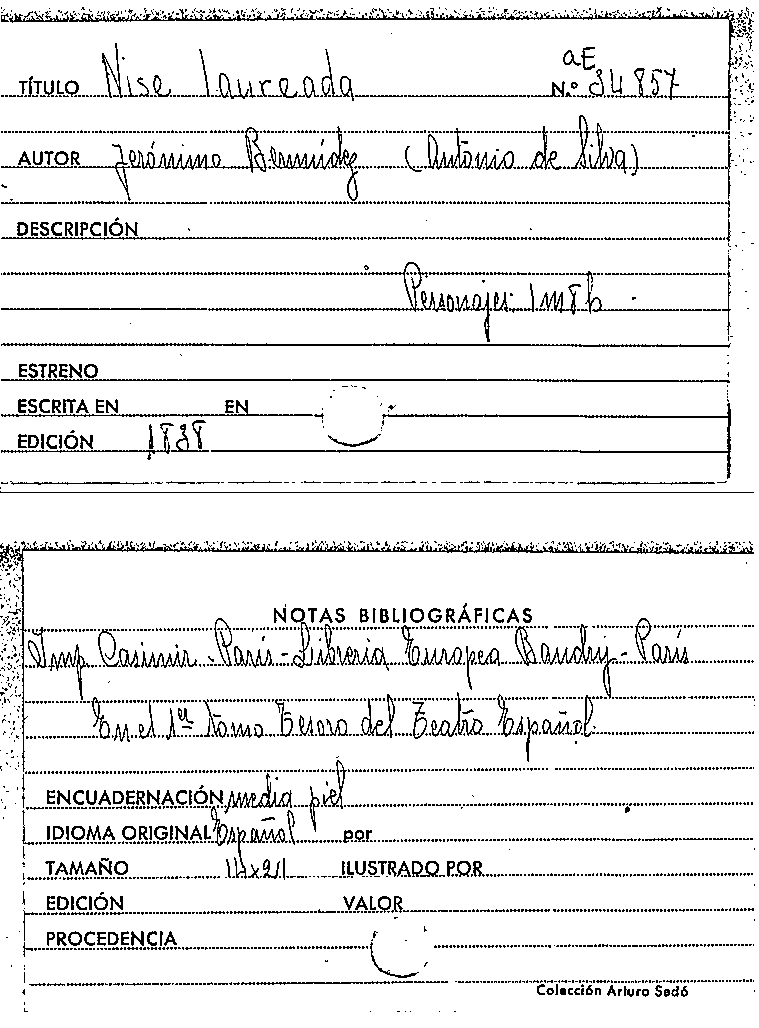 TÍTULO Nise laureada aE N.º 34857
AUTOR Jerónimo Bermúdez (Antonio de Silva)
DESCRIPCIÓN
Personajes: 1m 8h
ESTRENO
ESCRITA EN EN
EDICIÓN 1838
NOTAS BIBLIOGRÁFICAS
Imp Casimir - París - Librería Europea Baudry - París
En el 1er tomo Tesoro del Teatro Español.
ENCUADERNACIÓN media piel
IDIOMA ORIGINAL Español por
TAMAÑO 14x21 ILUSTRADO POR
EDICIÓN VALOR
PROCEDENCIA
Colección Arturo Sedó